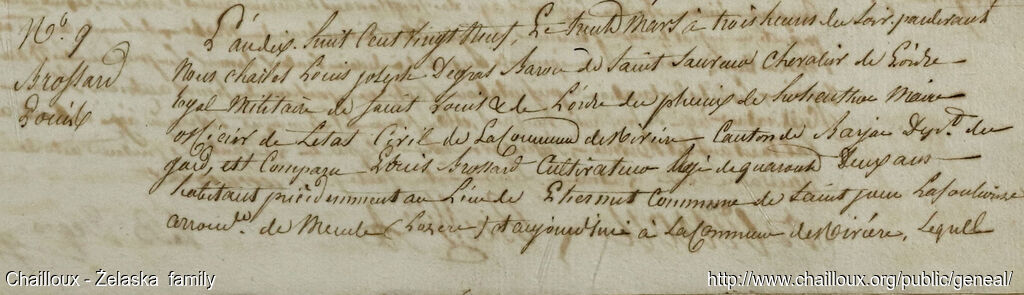 N.º 9
Brossard
Louis
L'an dix huit cent vingt neuf, Le trente Mars à trois heures du soir, pardevant
Nous charles Louis joseph Degras Baron de Saint Sauveur Chevalier de L'ordre
royal Militaire de saint Louis & de L'ordre du phenix de hohenlhoe Maire
officier de Letat Civil de La Commune de Rivière Canton de Barjac Dep.t du
gard, est Comparu Louis Brossard Cultivateur agé de quarante Deux ans
habitant précédemment au Lieu de Commune de Saint jean
arrond.t de Mende (Lozere) et aujourdhui à La Commune de Rivière, Lequel
Chailloux - Żelaska family
http://www.chailloux.org/public/geneal/